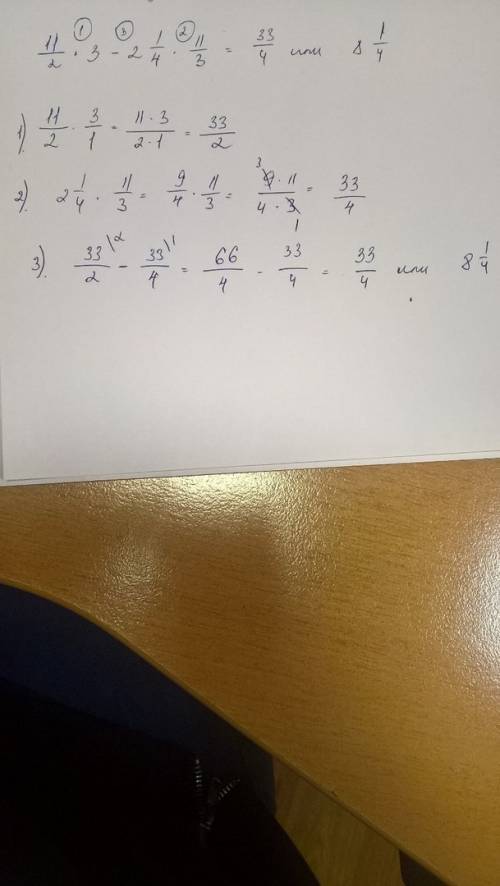 ① ③ ②
11/2 · 3 − 2 1/4 · 11/3 = 33/4 или 8 1/4
1). 11/2 · 3/1 = 11·3/2·1 = 33/2
2). 2 1/4 · 11/3 = 9/4 · 11/3 = ³9·11/4·3₁ = 33/4
3). 33/2 \2 − 33/4 \1 = 66/4 − 33/4 = 33/4 или 8 1/4